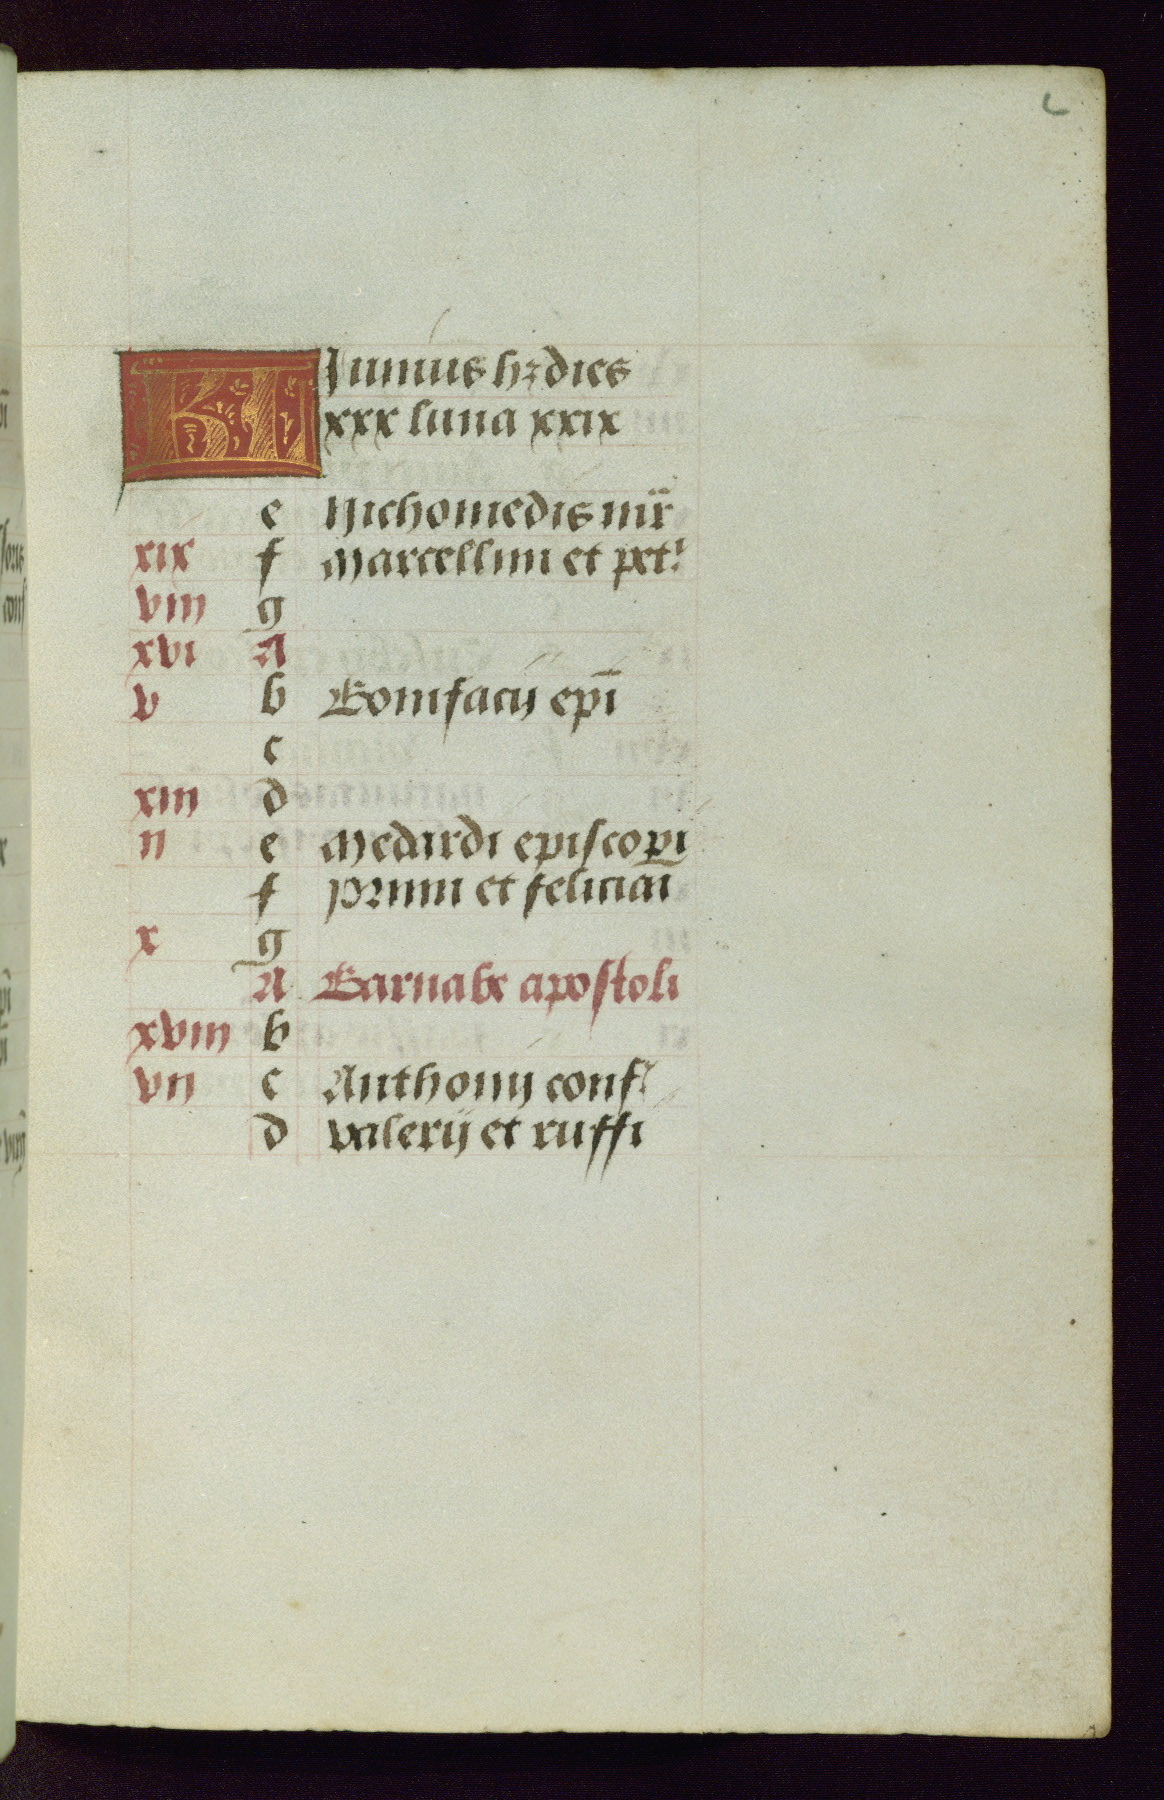 KL Iunius hꝫ dies
xxx luna xxix
e Nichomedis mr̄
xix f Marcellini et pet'
viii g
xvi A
v b Bonifacij ep̄i
c
xiii d
ii e Medardi episcopi
f Primi et feliciai̅
x g
A Barnabe apostoli
xviii b
vii c Anthonij conf'
d valerij et ruffi